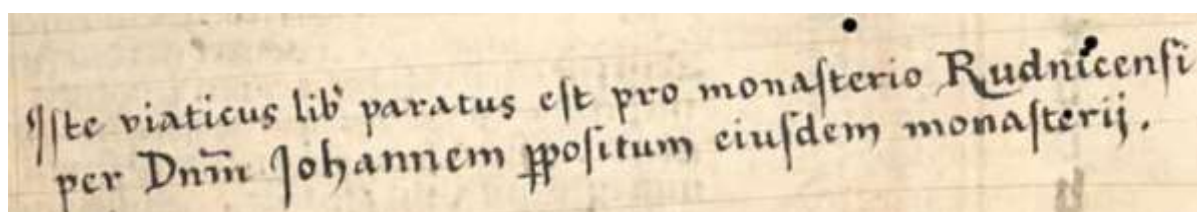 Iſte viaticus lib' paratus eſt pro monaſterio Rudnicenſi
per Dnm̄ Johannem ꝓpoſitum eiuſdem monaſterij.